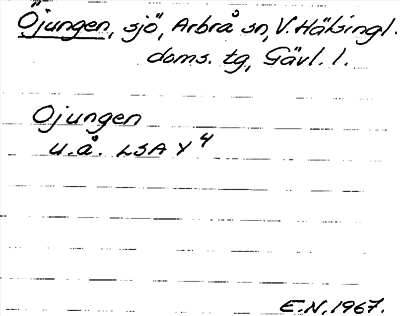 Öjungen, sjö, Arbrå sn, V. Hälsingl.
doms. tg, Gävl. l.
Ojungen
u.å. LSA Y 4
E.N. 1967.